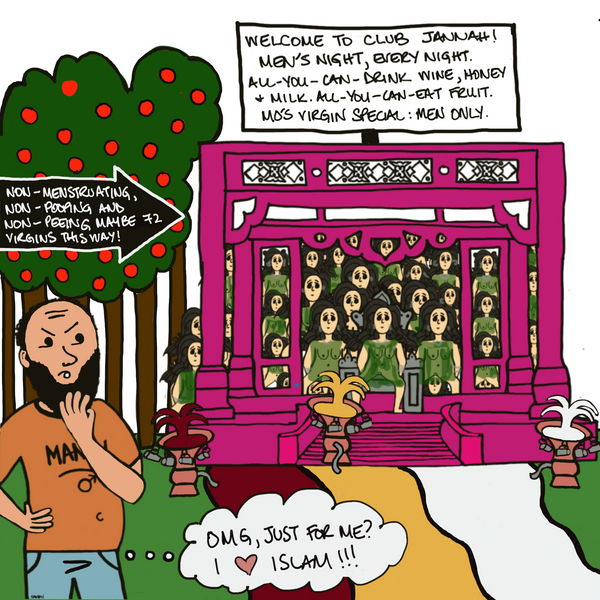 WELCOME TO CLUB JANNAH!
MEN'S NIGHT, EVERY NIGHT.
ALL-YOU-CAN-DRINK WINE, HONEY
+ MILK. ALL-YOU-CAN-EAT FRUIT.
MO'S VIRGIN SPECIAL: MEN ONLY.
NON-MENSTRUATING,
NON-POOPING AND
NON-PEEING MAYBE 72
VIRGINS THIS WAY!
MAN
OMG, JUST FOR ME?
I ♥ ISLAM!!!